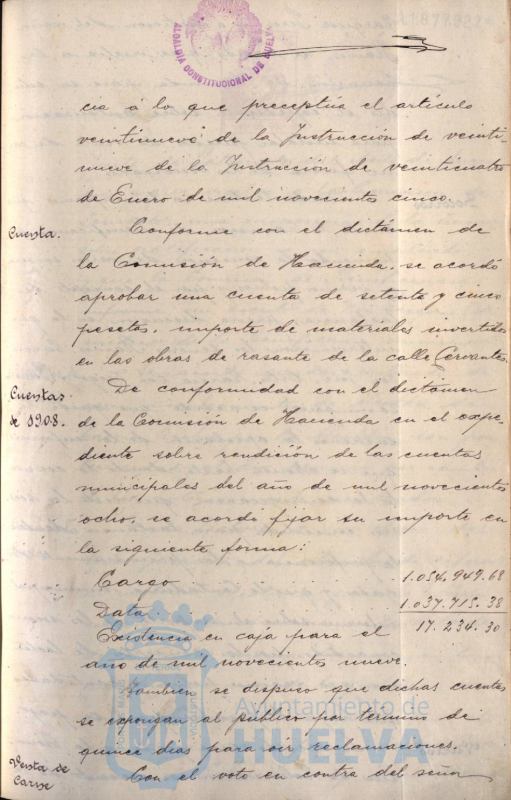 ALCALDÍA CONSTITUCIONAL DE HUELVA
cia á lo que preceptúa el artículo
veintinueve de la Instrucción de veinti-
nueve de la Instrucción de veinticuatro
de Enero de mil novecientos cinco.
Cuenta.
Conforme con el dictámen de
la Comisión de Hacienda, se acordó
aprobar una cuenta de setenta y cinco
pesetas, importe de materiales invertidos
en las obras de rasante de la calle Cervantes.
Cuentas
de 1908.
De conformidad con el dictámen
de la Comisión de Hacienda en el expe-
diente sobre rendición de las cuentas
municipales del año de mil novecientos
ocho, se acordó fijar su importe en
la siguiente forma:
Cargo 1.054.949.68
Data 1.037.715.38
Existencia en caja para el 17.234.30
año de mil novecientos nueve.
Tambien se dispuso que dichas cuentas
se expongan al público por término de
quince días para oir reclamaciones.
Venta de
Carne
Con el voto en contra del señor
Ayuntamiento de
HUELVA